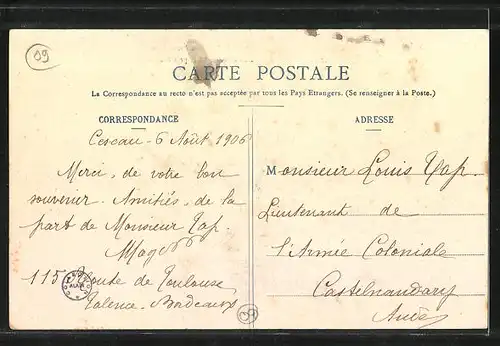 09
CARTE POSTALE
La Correspondance au recto n'est pas acceptée par tous les Pays Etrangers. (Se renseigner à la Poste.)
CORRESPONDANCE
6 Août 1906
Merci, de votre bon
souvenir. Amitiés, de la
part de Monsieur Yap.
115 Route de Toulouse
Talence. Bordeaux
ADRESSE
Monsieur Louis Yap.
Lieutenant de
l'Armée Coloniale
Castelnaudary
Aude